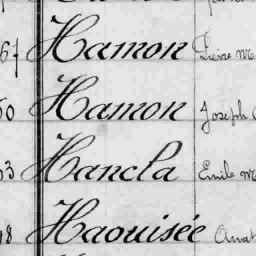 67 Hamon Pierre M
50 Hamon Joseph
53 Hancla Emile M
98 Haouisée Anat